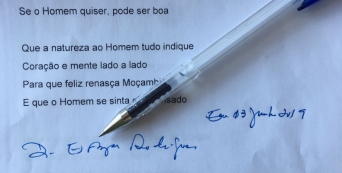 Se o Homem quiser, pode ser boa
Que a natureza ao Homem tudo indique
Coração e mente lado a lado
Para que feliz renasça Moçambi
E que o Homem se sinta sado
Em 03 Junho 2019
Rodrigues